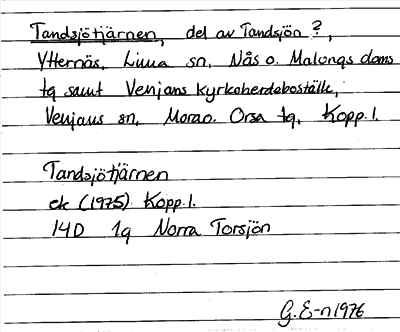 Tandsjötjärnen, del av Tandsjön?,
Ytternäs, Lima sn, Nås o. Malungs doms
tg samt Venjans kyrkoherdeboställe,
Venjans sn, Mora o. Orsa tg, Kopp. l.
Tandsjötjärnen
ek (1975) Kopp. l.
14D 1g Norra Torsjön
G. E-n 1976